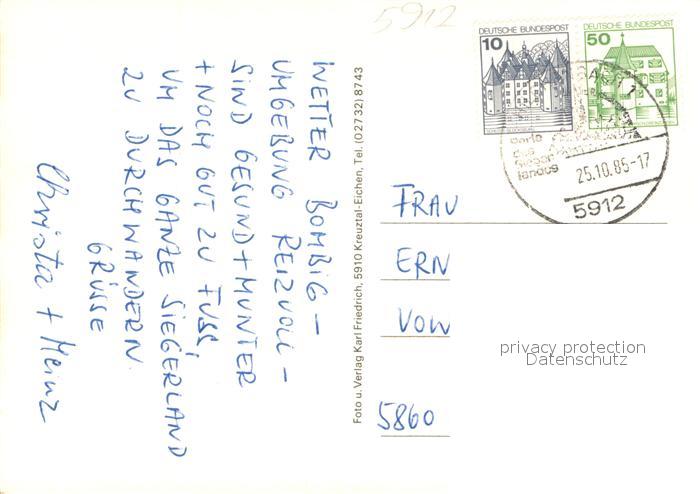 5912
DEUTSCHE BUNDESPOST
10
DEUTSCHE BUNDESPOST
50
des
landes
25.10.85-17
5912
WETTER BOMBIG –
UMGEBUNG REIZVOLL –
SIND GESUND + MUNTER
+ NOCH GUT ZU FUSS,
UM DAS GANZE SIEGERLAND
ZU DURCHWANDERN.
GRÜSSE
Christa + Heinz
Foto u. Verlag Karl Friedrich, 5910 Kreuztal-Eichen, Tel. (02732) 8743
FRAU
ERN
VON
5860
privacy protection
Datenschutz